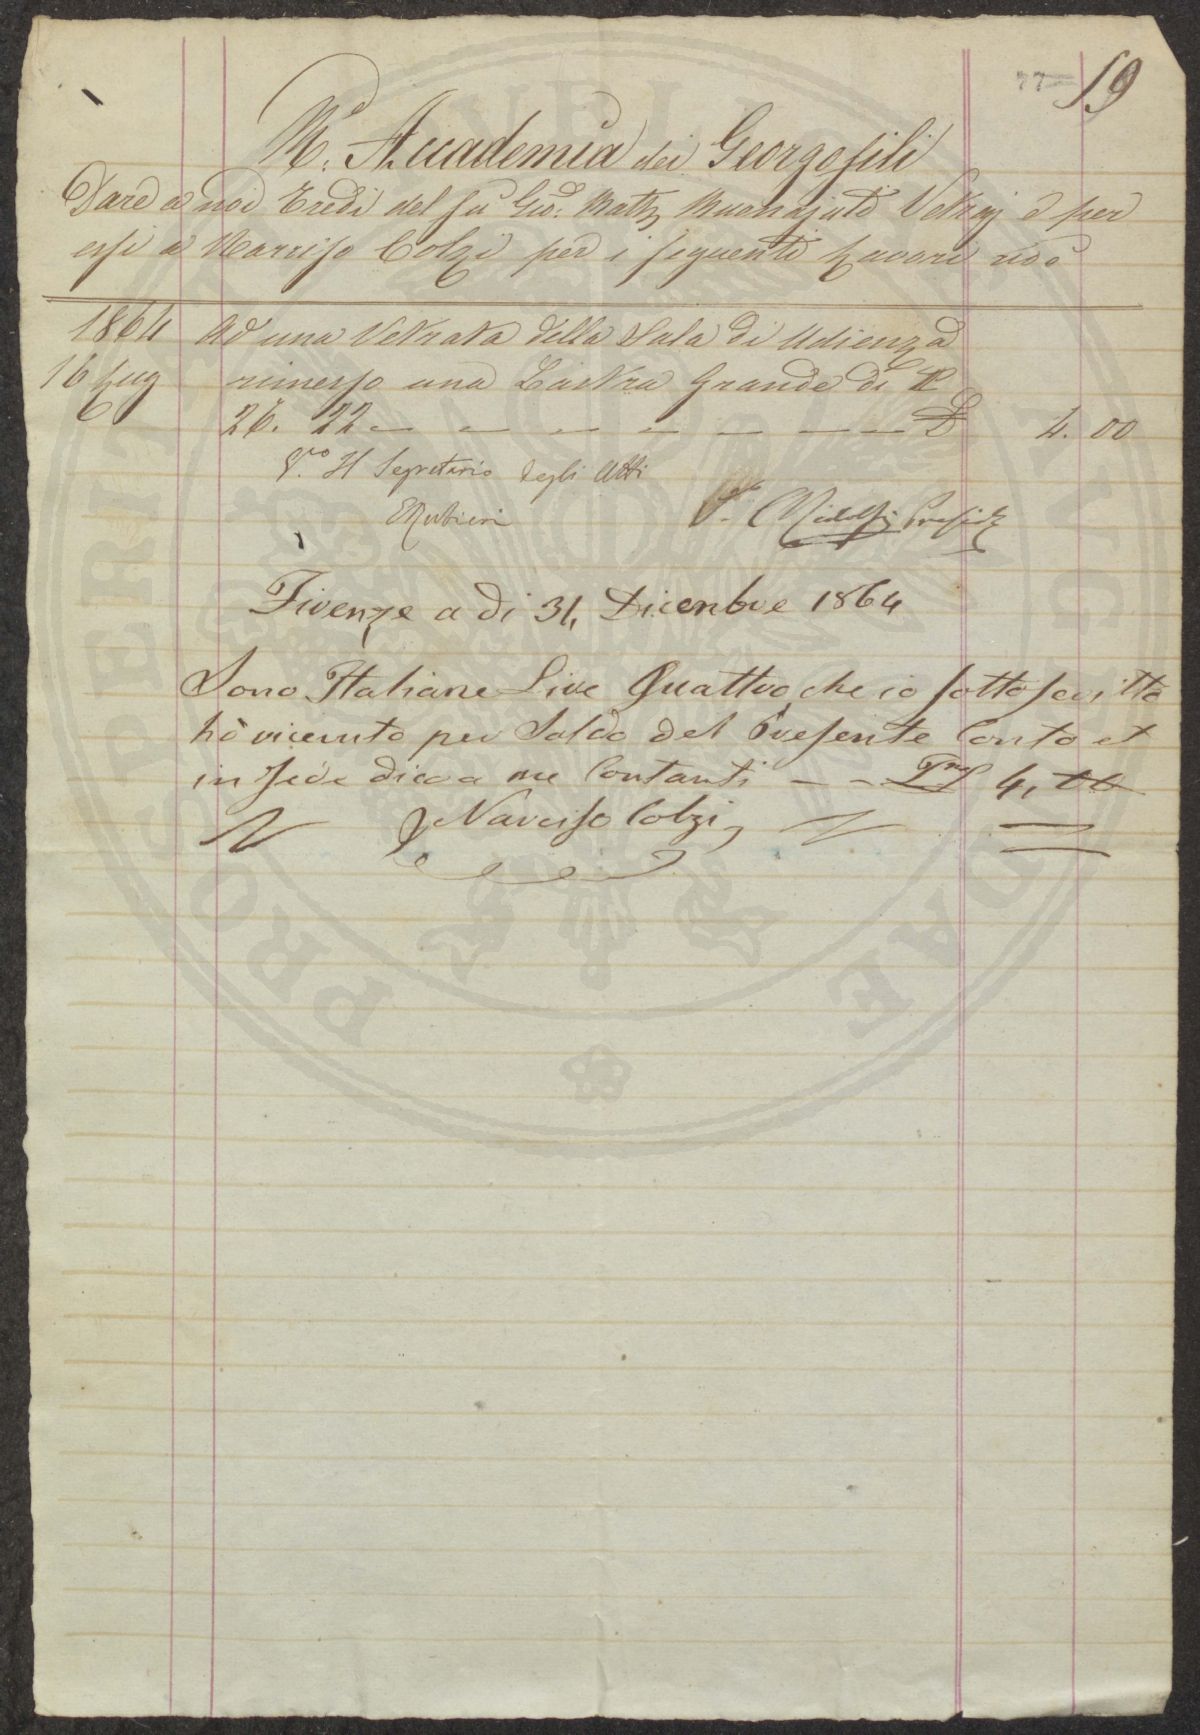 77 19
R. Accademia dei Georgofili
Dare a noi Eredi del fu Gio. Batt. Buonajuti Vetraj e per
essi a Narciso Colzi per i seguenti Lavori cioè
1864 Ad una Vetrata della Sala di Udienza
16 Lug rimesso una Lastra Grande di
26. 22 — — — — — — — £ 4. 00
Vto Il Segretario degli Atti
V. Ridolfi Preside
Firenze a di 31, Dicenbre 1864
Sono Italiane Lire Quattro, che io sottoscritto
hò ricevuto per Saldo del Presente Conto et
in fede dico a me Contanti — — 4, 00
Narciso Colzi
PROSPERITATI PUBLICAE AUGENDAE